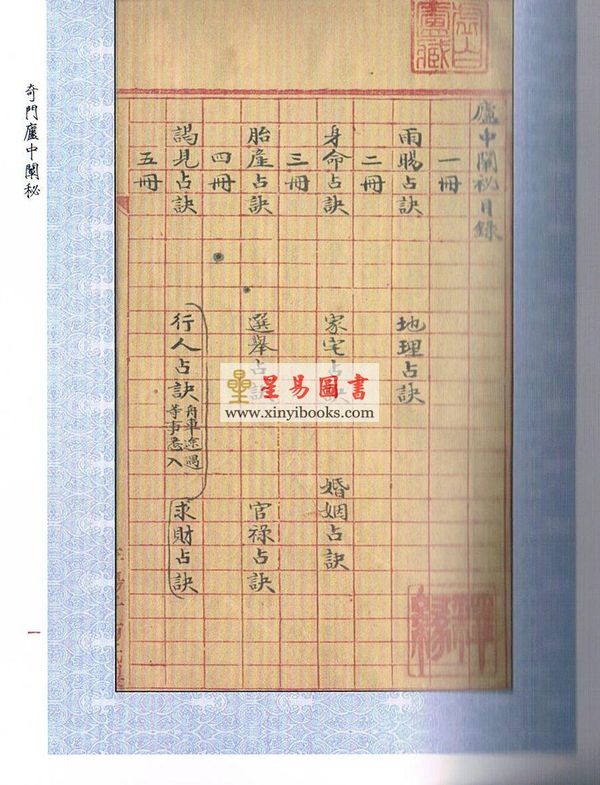 廬中闡秘目錄
一冊
雨暘占訣 地理占訣
二冊
身命占訣 家宅占訣 婚姻占訣
三冊
胎產占訣 選舉占訣 官祿占訣
四冊
謁見占訣 行人占訣 舟車途遇等事悉入 求財占訣
五冊
奇門廬中闡秘
一
虛白廬藏
星易圖書
www.xinyibooks.com